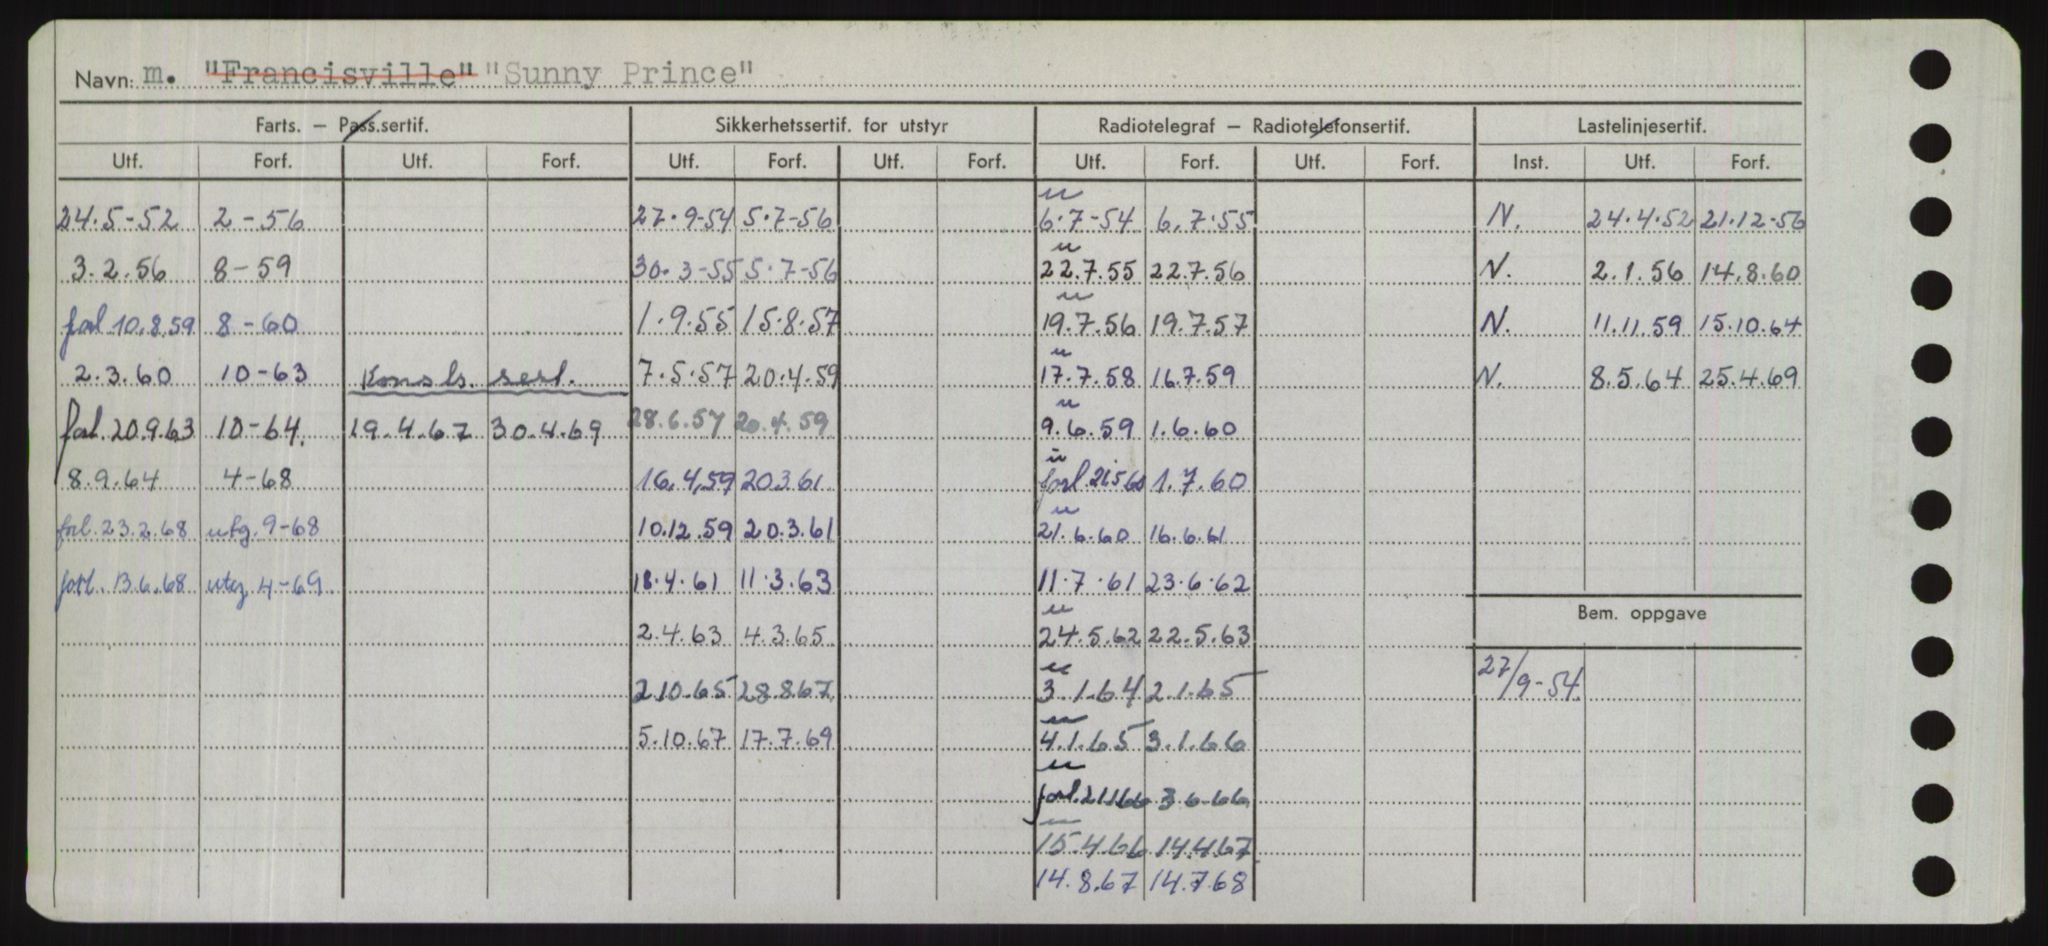 Navn: m. "Francisville" "Sunny Prince"
Farts. – Pass.sertif. Sikkerhetssertif. for utstyr Radiotelegraf – Radiotelefonsertif. Lastelinjesertif.
Utf. Forf. Utf. Forf. Utf. Forf. Utf. Forf. Utf. Forf. Utf. Forf. Inst. Utf. Forf.
24.5-52 2-56 27.9-54 5.7-56 u 6.7-54 6.7.55 N. 24.4.52 21.12-56
3.2.56 8-59 30.3-55 5.7-56 u 22.7.55 22.7.56 N. 2.1.56 14.8.60
forl 10.8.59 8-60 1.9.55 15.8.57 u 19.7.56 19.7.57 N. 11.11.59 15.10.64
2.3.60 10-63 Konstr. sert. 7.5.57 20.4.59 u 17.7.58 16.7.59 N. 8.5.64 25.4.69
forl. 20.9.63 10-64. 19.4.67 30.4.69 28.6.57 20.4.59 u 9.6.59 1.6.60
8.9.64 4-68 16.4.59 20.3.61 u forl. 21.5.60 1.7.60
forl. 23.2.68 utg. 9-68 10.12.59 20.3.61 u 21.6.60 16.6.61
forl. 13.6.68 utg. 4-69. 18.4.61 11.3.63 11.7.61 23.6.62
Bem. oppgave
2.4.63 4.3.65 u 24.5.62 22.5.63
2.10.65 28.8.67 u 3.1.64 2.1.65 27/9-54
5.10.67 17.7.69 u 4.1.65 3.1.66
u forl. 21.1.66 3.6.66
15.4.66 14.4.67
14.8.67 14.7.68